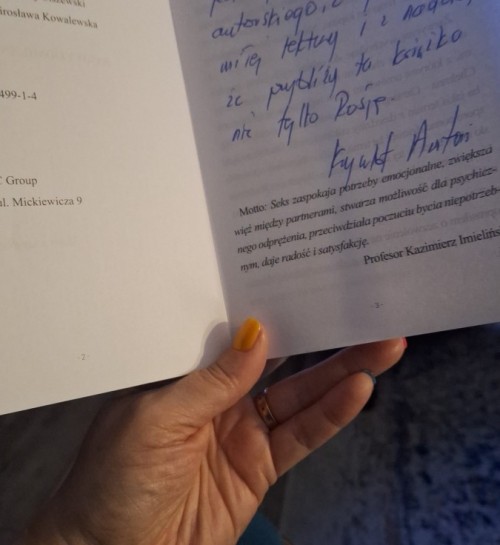 irosława Kowalewska
499-1-4
C Group
ul. Mickiewicza 9
- 2 -
autorskiego,
miłej lektury i z nadzieją
że przybliży ta książka
nie tylko Rosję.
Motto: Seks zaspokaja potrzeby emocjonalne, zwiększa
więź między partnerami, stwarza możliwość dla psychicz-
nego odprężenia, przeciwdziała poczuciu bycia niepotrzeb-
nym, daje radość i satysfakcję.
Profesor Kazimierz Imielińs